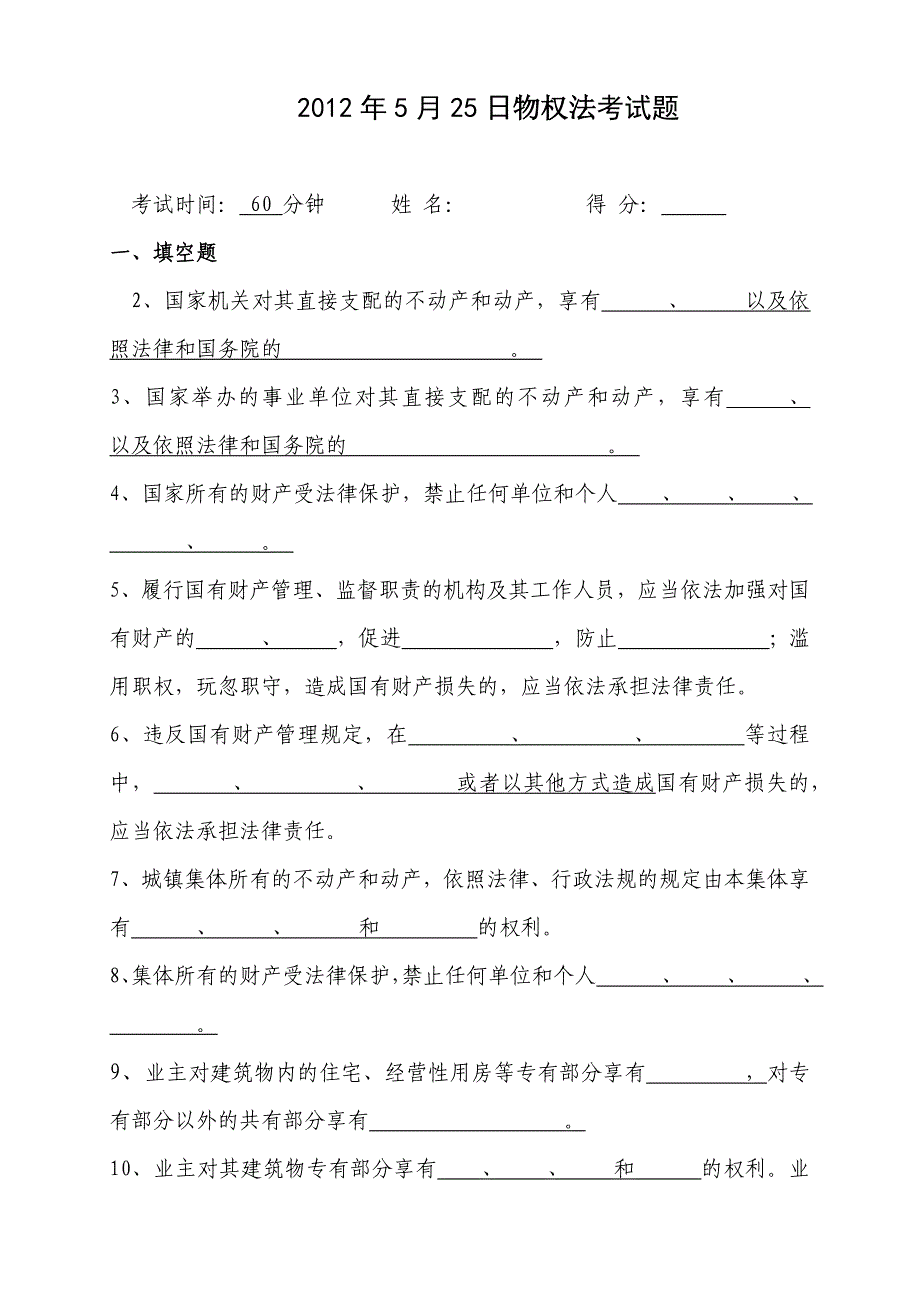 2012年5月25日物权法考试题
考试时间： 60 分钟 姓 名： 得 分：
一、填空题
2、国家机关对其直接支配的不动产和动产，享有 、 以及依
照法律和国务院的 。
3、国家举办的事业单位对其直接支配的不动产和动产，享有 、
以及依照法律和国务院的 。
4、国家所有的财产受法律保护，禁止任何单位和个人 、 、 、
、 。
5、履行国有财产管理、监督职责的机构及其工作人员，应当依法加强对国
有财产的 、 ，促进 ，防止 ；滥
用职权，玩忽职守，造成国有财产损失的，应当依法承担法律责任。
6、违反国有财产管理规定，在 、 、 等过程
中， 、 、 或者以其他方式造成国有财产损失的，
应当依法承担法律责任。
7、城镇集体所有的不动产和动产，依照法律、行政法规的规定由本集体享
有 、 、 和 的权利。
8、集体所有的财产受法律保护，禁止任何单位和个人 、 、 、
。
9、业主对建筑物内的住宅、经营性用房等专有部分享有 ，对专
有部分以外的共有部分享有 。
10、业主对其建筑物专有部分享有 、 、 和 的权利。业